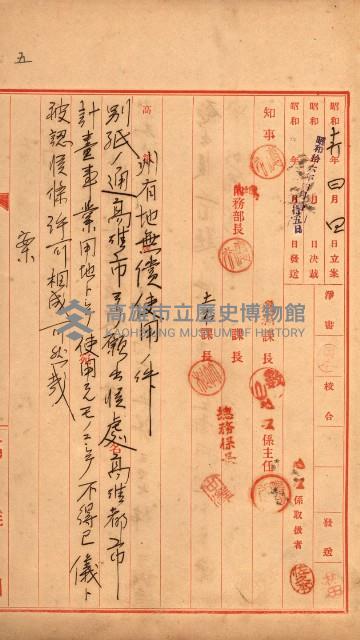 昭和十六年四月四日立案
浄書 校合 發送
昭和 年 月 日決裁
昭和拾六年 月 五日
昭和 年 月 日發送
知事
内務部長
課長
係主任
係取扱者
土 課長
課長
總務係
高
州有地無償使用ノ件
別紙ノ通高雄市ヨリ願出候處高雄都市
計畫事業用地トシテ使用スルモノニシテ不得已儀ト
被認候條許可相成可然哉
案
五
高雄市立歷史博物館
KAOHSIUNG MUSEUM OF HISTORY